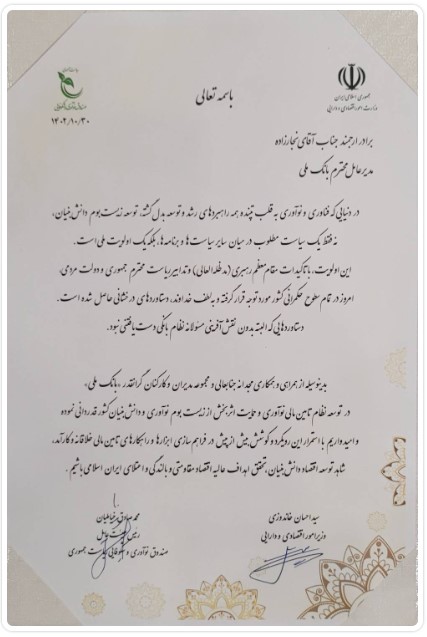 باسمه تعالی
جمهوری اسلامی ایران
وزارت امور اقتصادی و دارایی
۱۴۰۲/۱۰/۳۰
برادر ارجمند جناب آقای نجارزاده
مدیرعامل محترم بانک ملی
در دنیایی که فناوری و نوآوری به قلب تپنده همه راهبردهای رشد و توسعه بدل گشته، توسعه زیست‌بوم دانش‌بنیان،
نه فقط یک سیاست مطلوب در میان سایر سیاست‌ها و برنامه‌ها، بلکه یک اولویت ملی است.
این اولویت، با تاکیدات مقام معظم رهبری (مدظله‌العالی) و تدابیر ریاست محترم جمهوری و دولت مردمی،
امروز در تمام سطوح حکمرانی کشور مورد توجه قرار گرفته و به لطف خداوند، دستاوردهای درخشانی حاصل شده است.
دستاوردهایی که البته بدون نقش آفرینی مسئولانه نظام بانکی دست یافتنی نبود.
بدینوسیله از همراهی و همکاری مجدانه جنابعالی و مجموعه مدیران و کارکنان گرانقدر «بانک ملی»
در توسعه نظام تامین مالی نوآوری و حمایت اثربخش از زیست بوم نوآوری و دانش‌بنیان کشور قدردانی نموده
و امیدواریم با استمرار این رویکرد و کوشش بیش از پیش در فراهم سازی ابزارها و راهکارهای تامین مالی خلاقانه و کارآمد،
شاهد توسعه اقتصاد دانش‌بنیان، تحقق اهداف عالیه اقتصاد مقاومتی و بالندگی و اعتلای ایران اسلامی باشیم.
سید احسان خاندوزی
وزیر امور اقتصادی و دارایی
محمدصادق خیاطیان
صندوق نوآوری و شکوفایی ریاست جمهوری